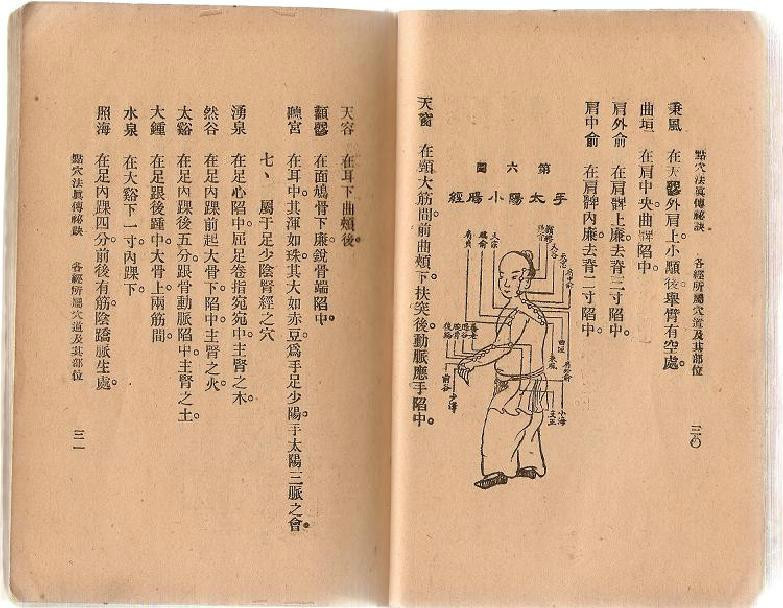 點穴法眞傳祕訣　各經所屬穴道及其部位　三〇
秉風　在天髎外肩上小顒後舉臂有空處。
曲垣　在肩中央曲髀陷中。
肩外俞　在肩髀上廉去脊三寸陷中。
肩中俞　在肩髀內廉去脊二寸陷中。
第六圖
手太陽小腸經
聽宮
天容
天窗
肩中俞
天宗
臑俞
肩貞
曲垣
秉風
肩外俞
養老
陽谷
腕骨
後谿
前谷
少澤
小海
支正
天窗　在頸大筋間前曲頰下扶突後動脈應手陷中。
天容　在耳下曲頰後。
顴髎　在面鳩骨下廉銳骨端陷中。
聽宮　在耳中其渾如珠其大如赤豆爲手足少陽手太陽三脈之會。
七、屬于足少陰腎經之穴
湧泉　在足心陷中屈足卷指宛宛中主腎之木。
然谷　在足內踝前起大骨下陷中主腎之火。
太谿　在足內踝後五分跟骨動脈陷中主腎之土。
大鍾　在足跟後踵中大骨上兩筋間。
水泉　在大谿下一寸內踝下。
照海　在足內踝四分前後有筋陰蹻脈生處。
點穴法眞傳祕訣　各經所屬穴道及其部位　三一